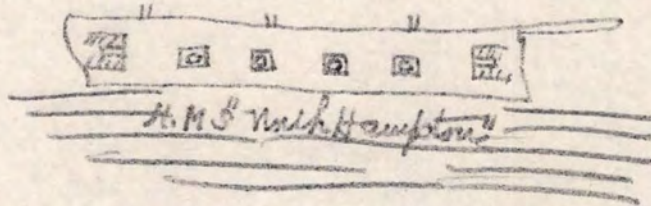 H.M.S "NorthHampton"